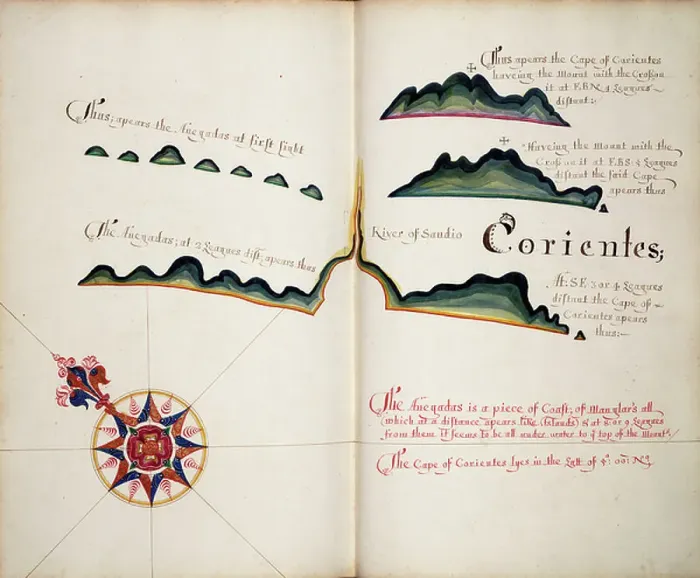 Thus; apears the Anegadas at first sight
The Anegadas; at 2 Leagues dist: apears thus
Thus apears the Cape of Corientes
haveing the Mount with the Cross on
it at E.B.N. 4 Leagues
distant:
Haveing the Mount with the
Cross on it at E.B.S: 4 Leagues
distant the said Cape
apears thus
River of Sandio
Corientes;
At S.E. 3 or 4 Leagues
distant the Cape of
Corientes apears
thus:
The Anegadas is a piece of Coast; of Manglar's all
(which at a distance apears like Islands) & at 8 or 9 Leagues
from them it seems to be all under water to ye top of the Mount
The Cape of Corientes lyes in the Latt of 4°: 00: No